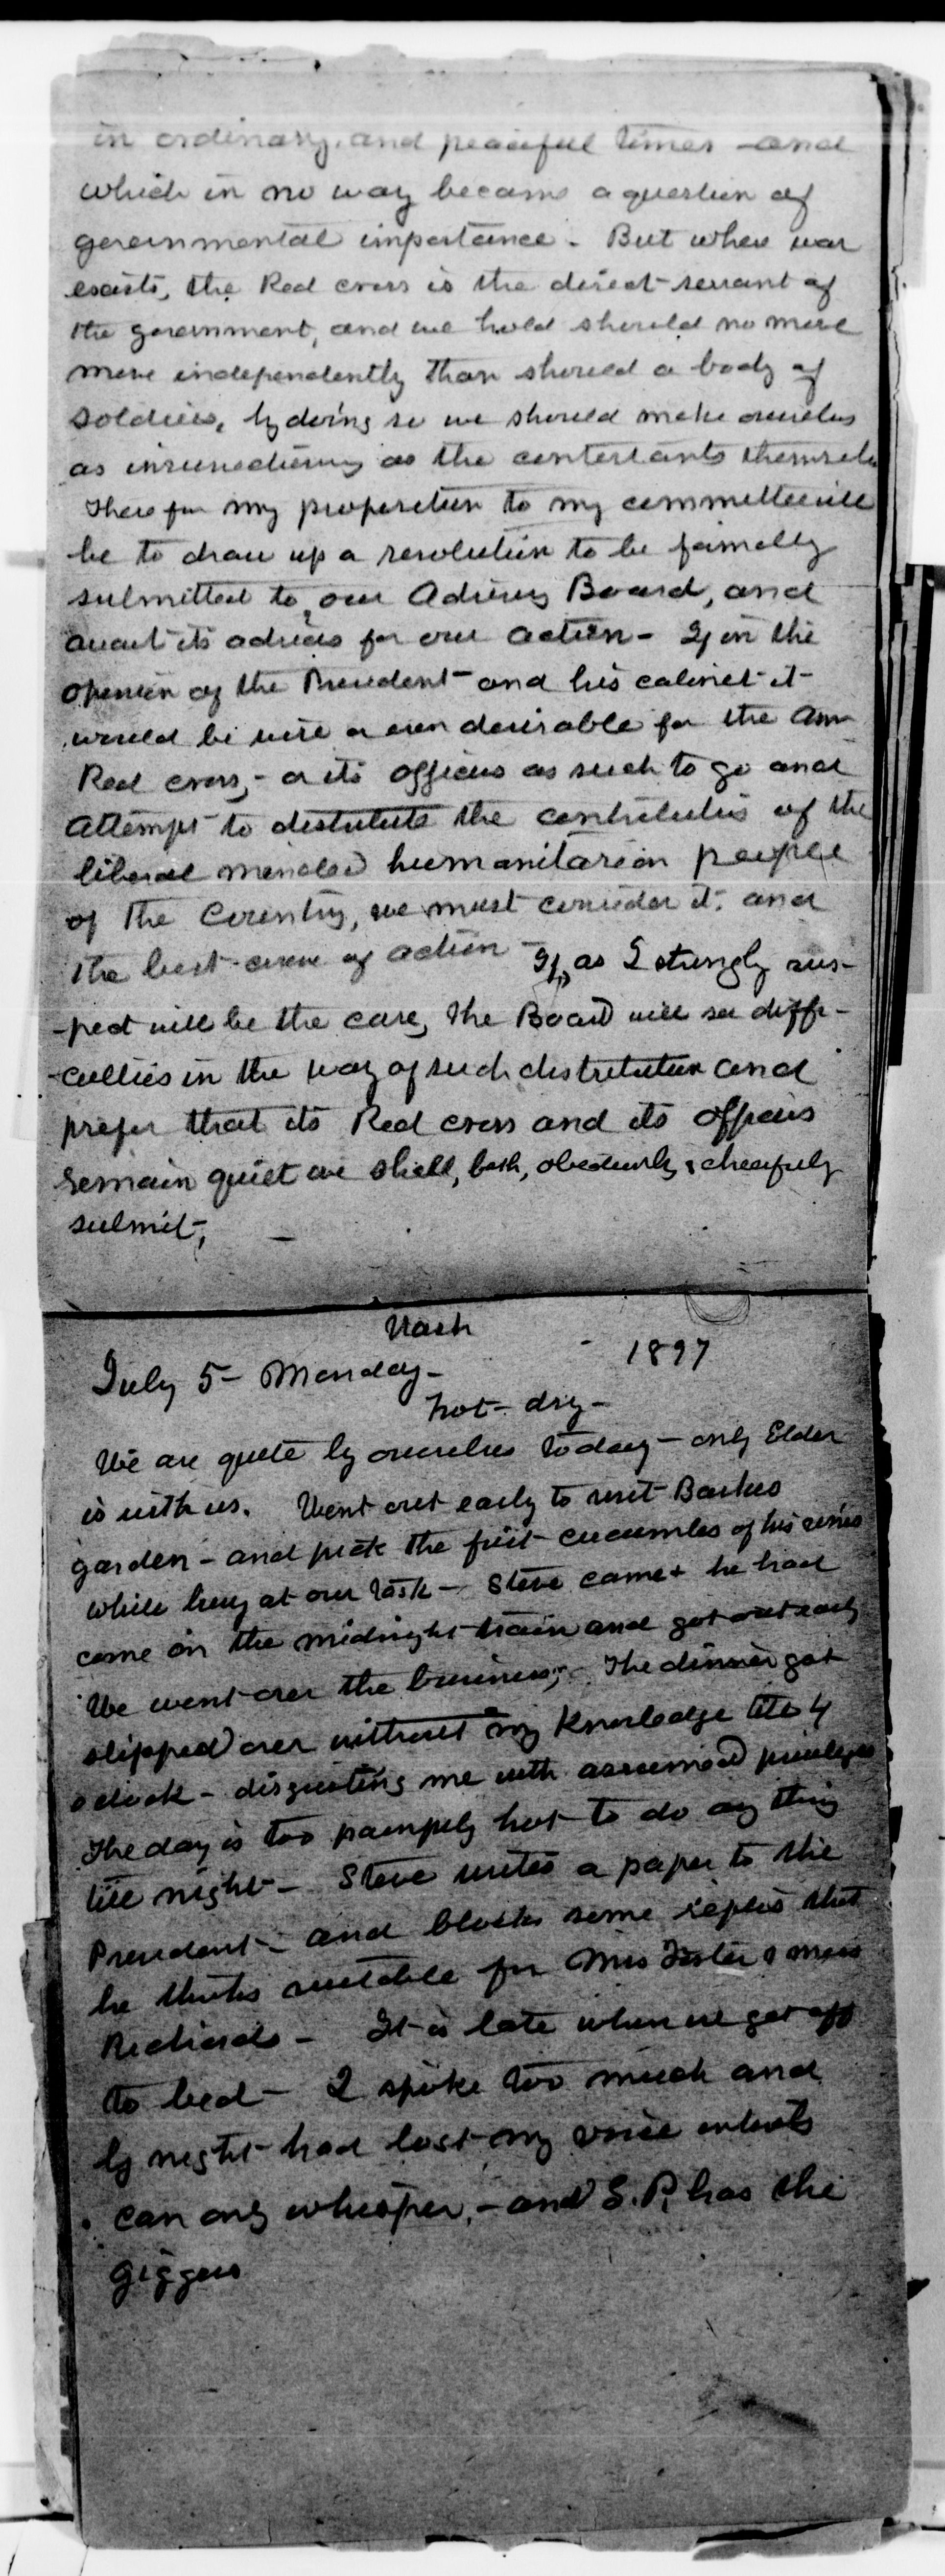 in ordinary, and peaceful times - and
which in no way became a question of
governmental importance - But when war
exists, the Red cross is the direct servant of
the government, and we hold should no more
move independently than should a body of
soldiers, by doing so we should make ourselves
as insurrectionary as the contestants themselves
Therefor my proposition to my committee will
be to draw up a resolution to be formally
submitted to our Advisory Board, and
await its advices for our action - If in the
opinion of the President - and his cabinet it
would be wise or even desirable for the Am
Red cross, - or its officers as such to go and
attempt to distribute the contributions of the
liberal minded humanitarian people
of the Country, we must consider it, and
the best course of action - If, as I strongly sus-
-pect will be the case, the Board will see diffi-
-culties in the way of such distribution and
prefer that its Red cross and its officers
remain quiet we shall, both, obediently & cheerfully
submit, -
Wash
July 5 - Monday - 1897
hot - dry -
We are quite by ourselves today - only Elder
is with us. Went out early to visit Barkers
garden - and pick the first cucumbers of his vines
while busy at our task - Steve came & he had
come on the midnight train and got out early
We went over the business, - The dinner got
slipped over without my Knowledge till 4
oclock - disgusting me with assumed privileges
The day is too painfully hot to do any thing
till night - Steve writes a paper to the
President - and blocks some replies that
he thinks suitable for Mrs Foster & Miss
Richards - It is late when we get off
to bed - I spoke too much and
by night had lost my voice
can only whisper, - and S.P. has the
giggers